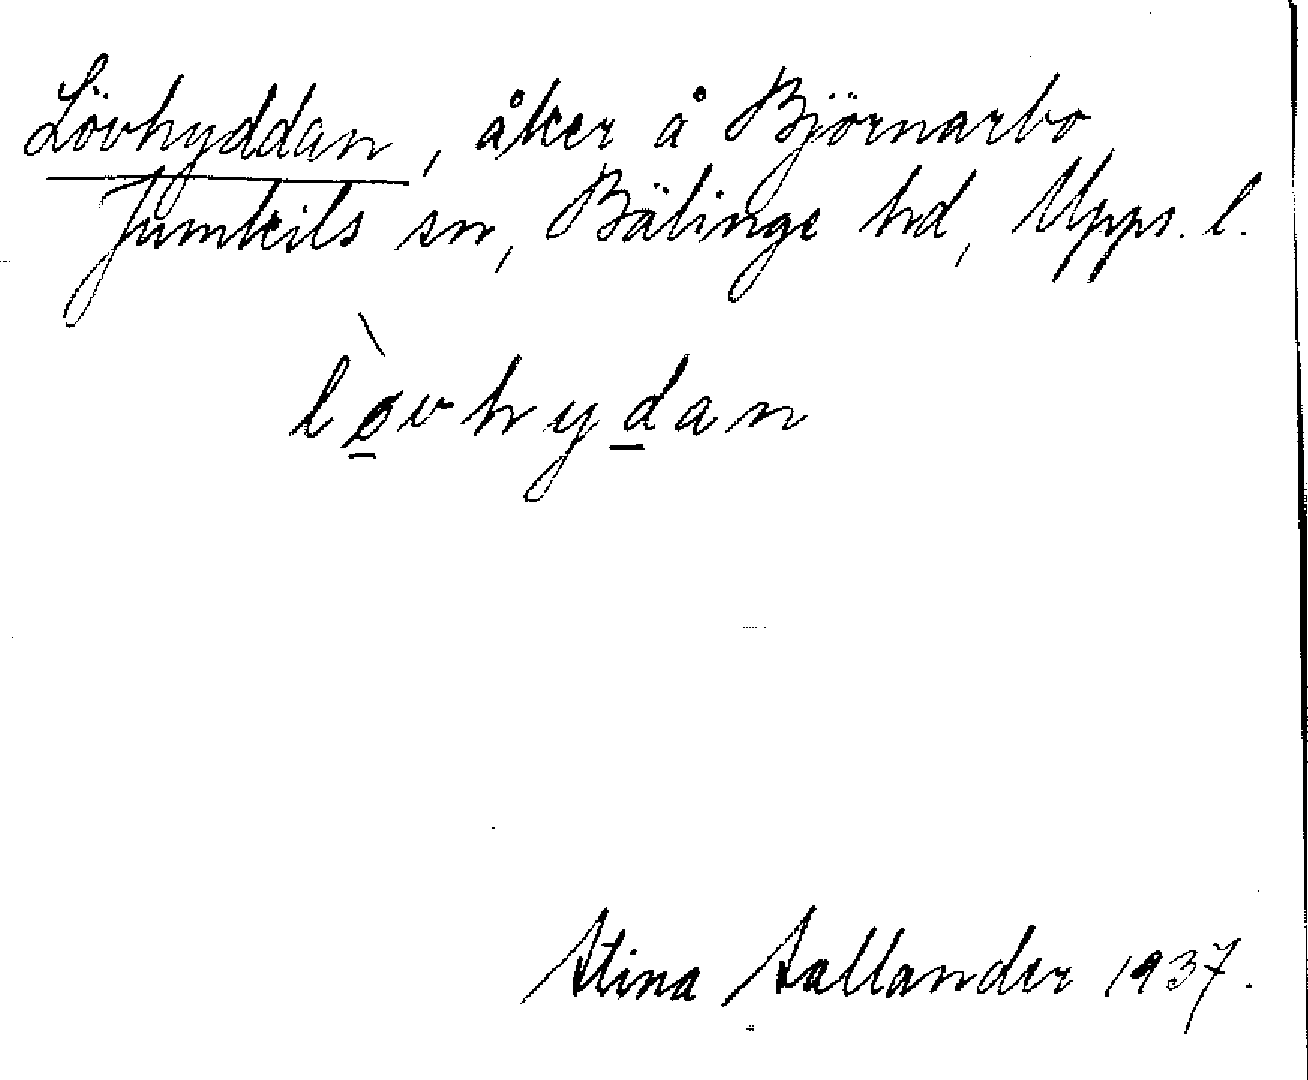 Lövhyddan, åker å Björnarbo
Jumkils sn, Bälinge hd, Upps. l.
l&#x0332;ø̲̀vhyd̲an
Stina Sallander 1937.